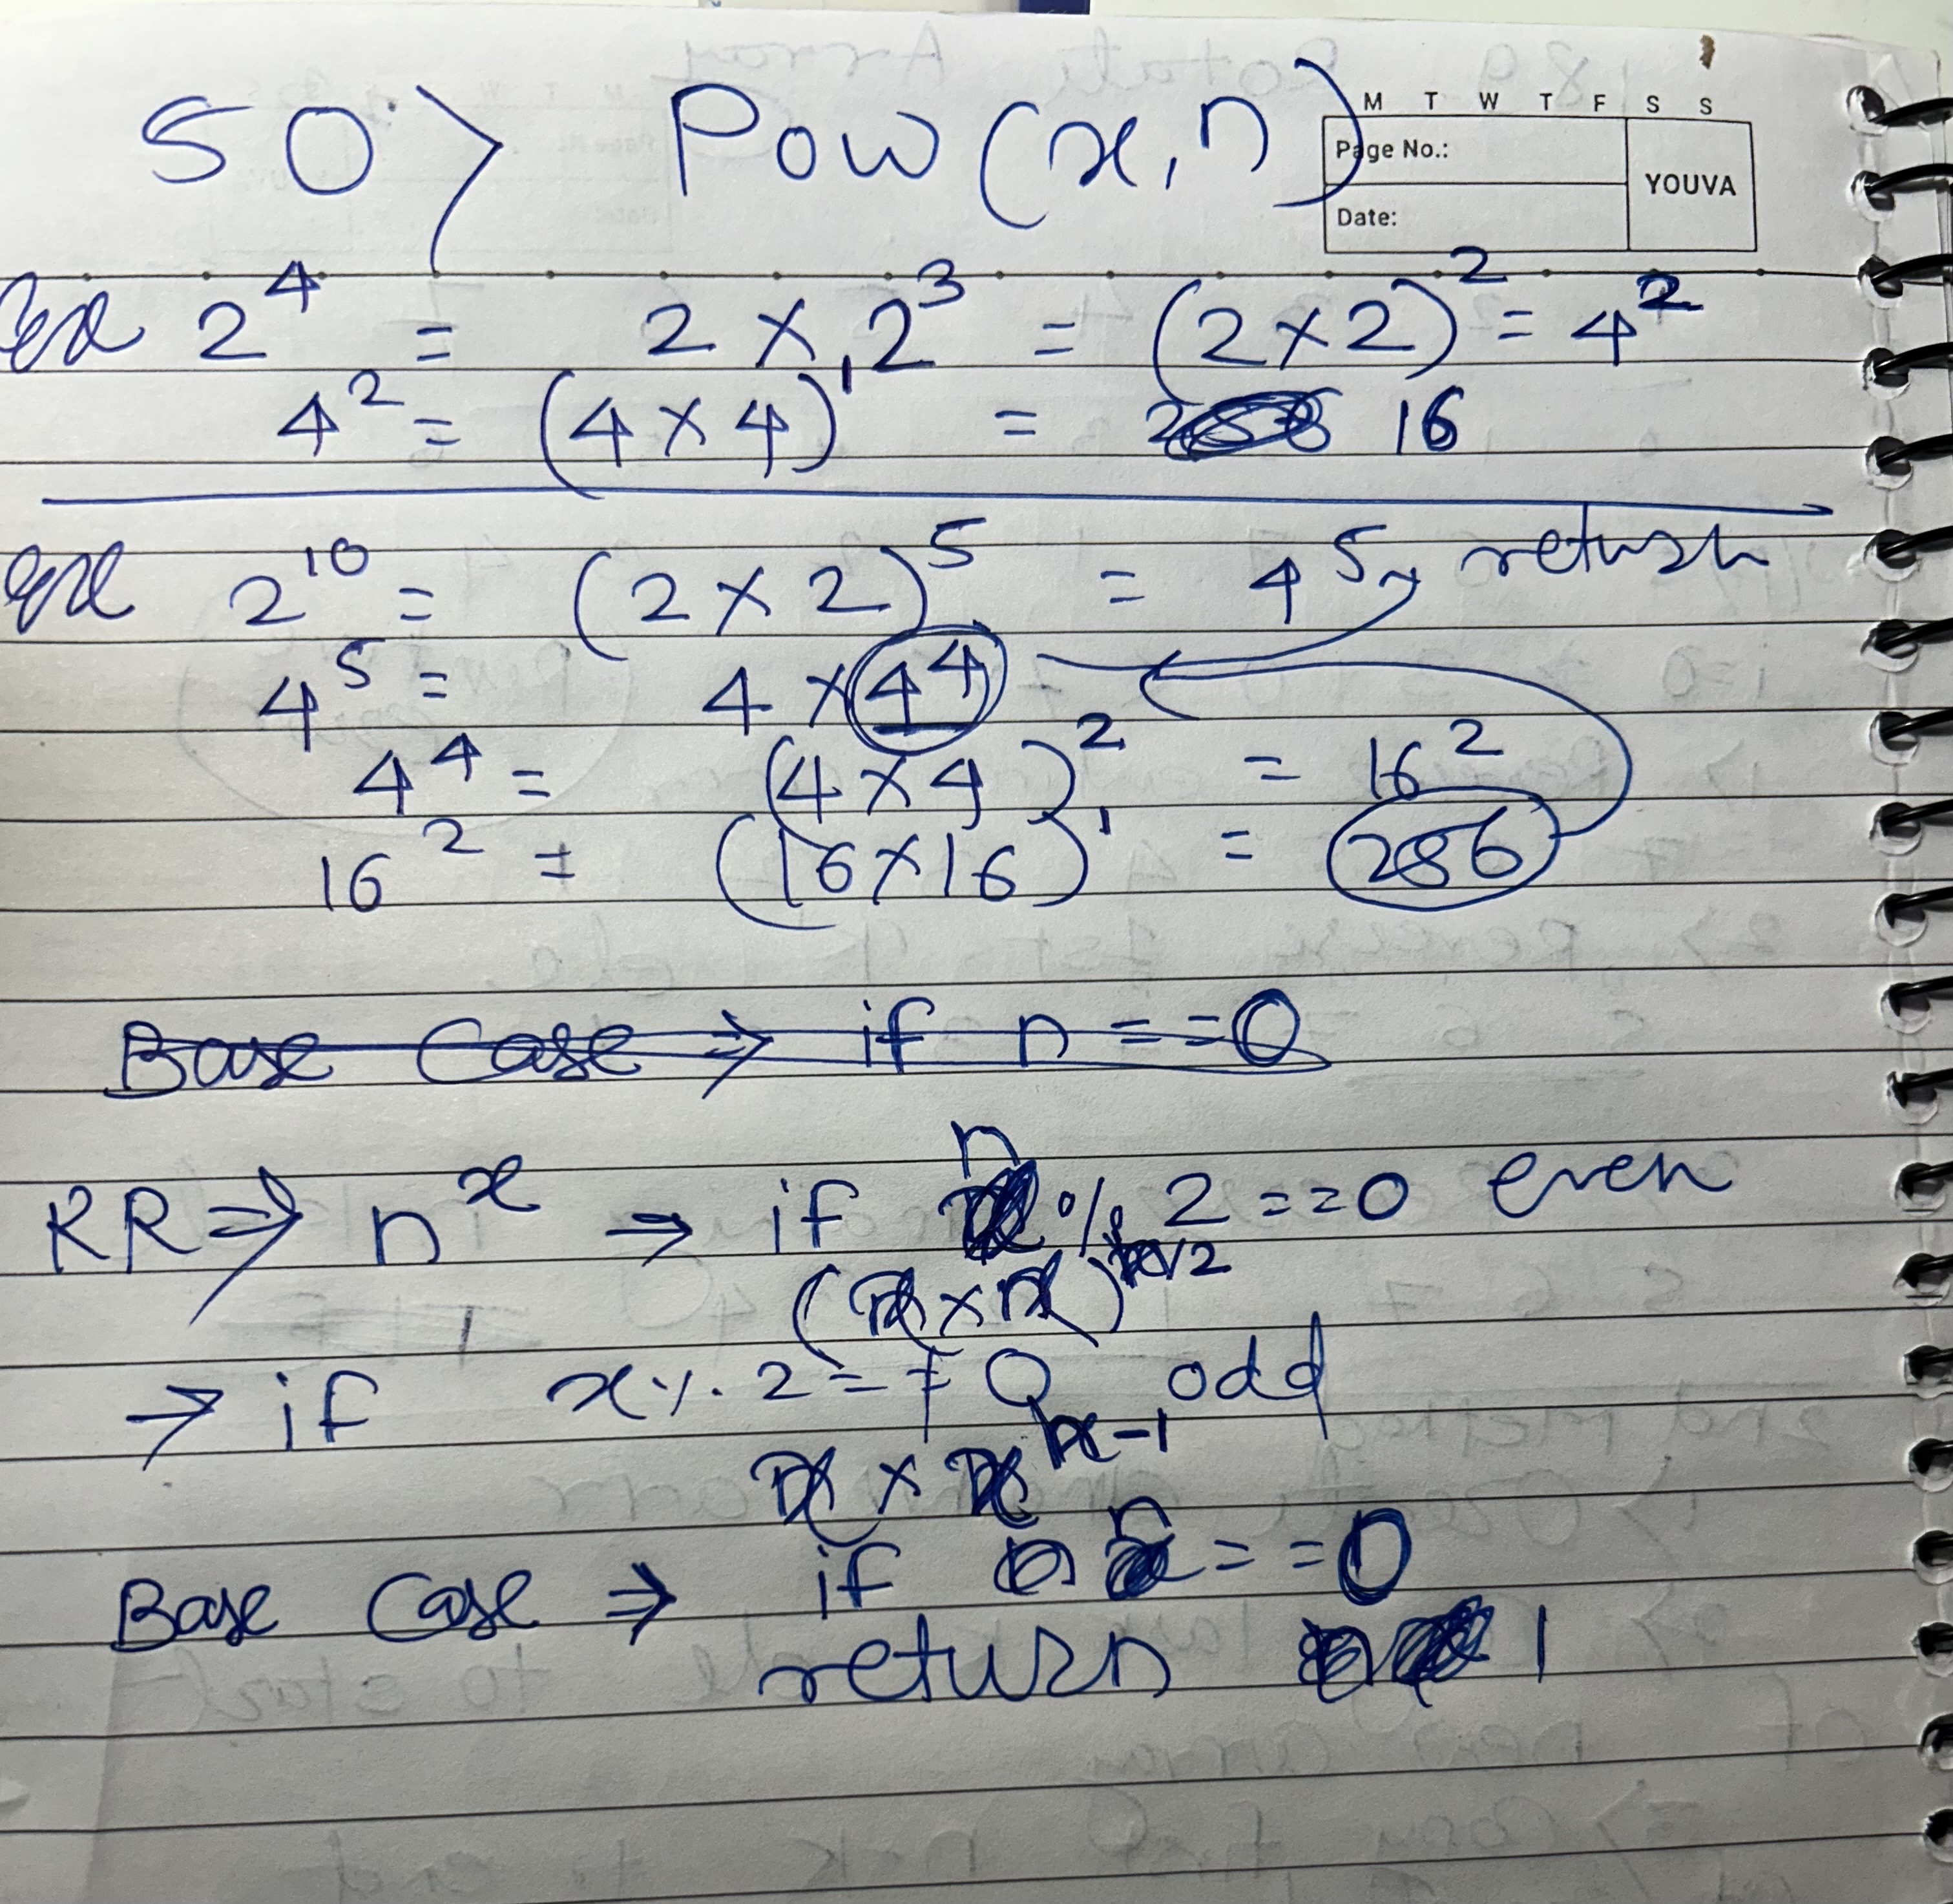 50> Pow(x,n)
M T W T F S S
Page No.:
YOUVA
Date:
Ex 2^4 = 2 × 2^3 = (2×2)^2 = 4^2
4^2 = (4×4)^1 = 16
Ex 2^10 = (2×2)^5 = 4^5 return
4^5 = 4 × 4^4
4^4 = (4×4)^2 = 16^2
16^2 = (16×16)^1 = 256
Base Case ⇒ if n==0
RR ⇒ n^x → if n % 2 ==0 even
(x×x)^n/2
→ if x % 2 = ≠ 0 odd
x × x^n-1
Base Case ⇒ if n ==0
return 1